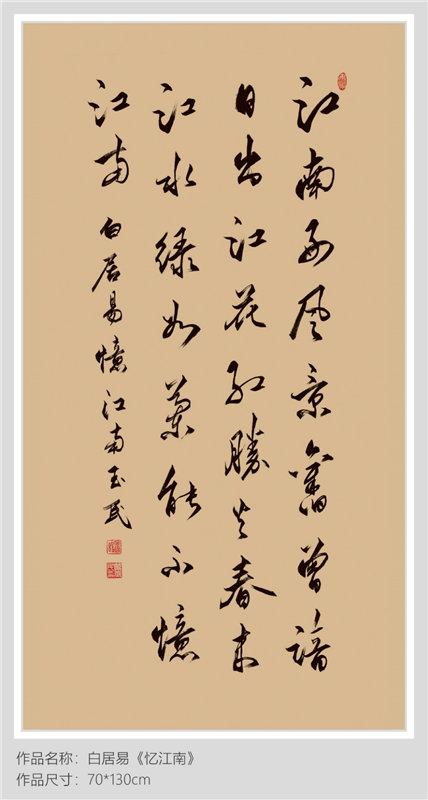 江南好风景舊曾諳
日出江花红勝火春来
江水绿如蓝能不憶
江南
白居易憶江南玉民
作品名称：白居易《忆江南》
作品尺寸：70*130cm